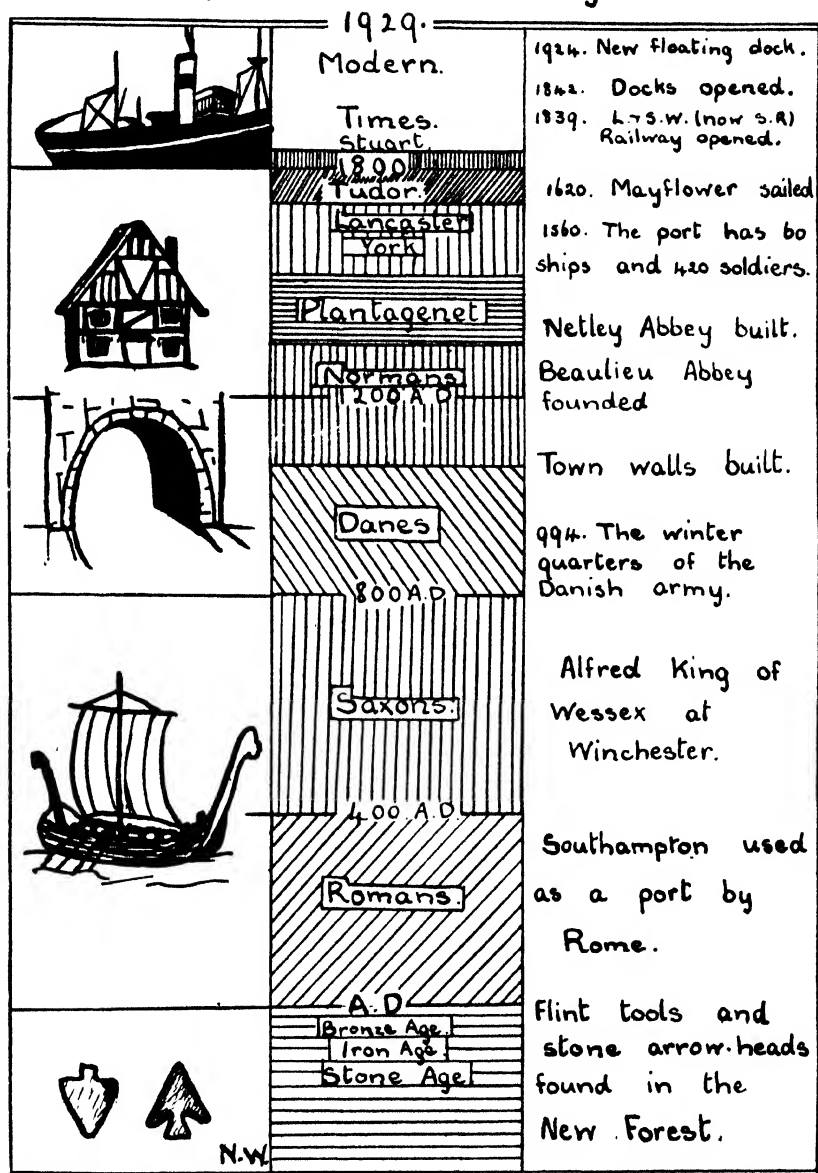 1929.
Modern.
Times.
Stuart.
1800
Tudor.
Lancaster
York
Plantagenet
Normans
1200 A.D
Danes
800 A.D
Saxons.
400 A.D.
Romans.
A.D
Bronze Age.
Iron Age.
Stone Age
1924. New floating dock.
1842. Docks opened.
1839. L & S.W. (now S.R)
Railway opened.
1620. Mayflower sailed
1560. The port has 60
ships and 420 soldiers.
Netley Abbey built.
Beaulieu Abbey
founded
Town walls built.
994. The winter
quarters of the
Danish army.
Alfred King of
Wessex at
Winchester.
Southampton used
as a port by
Rome.
Flint tools and
stone arrow-heads
found in the
New Forest.
N.W.